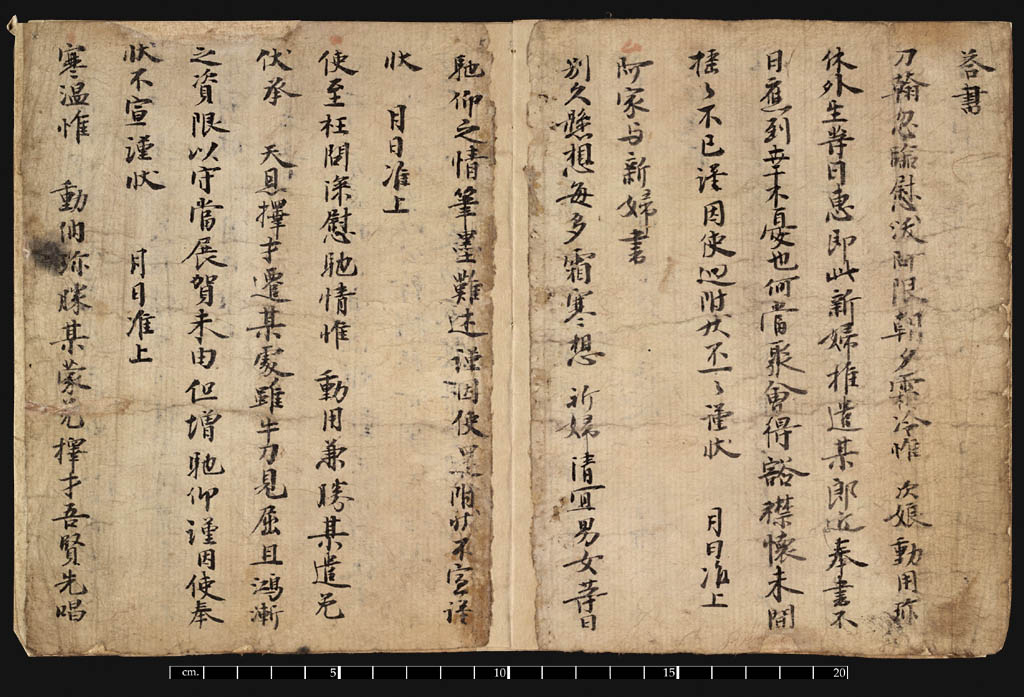 荅書
刀翰忽臨慰沃門限朝夕霜冷惟 次娘動用珎
休外生等日惠即此新婦推遣某郎近奉書不
日應到幸不憂也何當聚會得豁襟懷未間
揺〻不已謹因使迴附狀不一〻謹狀 月日准上
阿家与新婦書
別久懸想每多霜寒想 新婦清冝男女等日
馳仰之情筆墨難述謹因使 附狀不宣謹
狀 月日准上
使至枉問深慰馳情惟 動用兼勝某遣免
伏承 天恩擇才遷某處雖牛刀見屈且鴻漸
之資限以守當展賀未由但增馳仰謹因使奉
狀不宣謹狀 月日准上
寒温惟 動納珎勝某蒙免擇才吾賢先唱